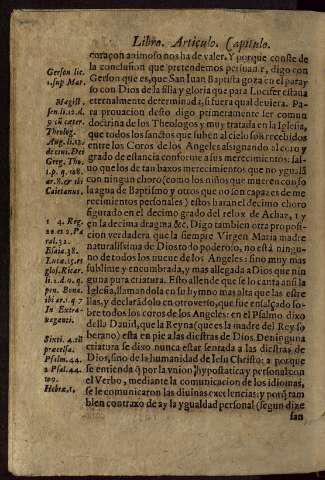 Libro. Articulo. Capitulo.
coraçon animoso nos ha de valer. Y porque conste de
la conclusion que pretendemos persuadir, digo con
Gerson que es, que San Iuan Baptista goza en el paray
so con Dios de la silla y gloria que para Lucifer estaua
eternalmente determinada, si fuera qual deuiera. Pa
ra prouacion desto digo primeramente ser comun
doctrina de los Theologos y muy tratada en la Iglesia,
que todos los sanctos que suben al cielo son recebidos
entre los Coros de los Angeles asignando al coro y
grado de estancia conforme a sus merecimientos: sal
uo que los de tan baxos merecimientos que no ygualã
con ningun choro (como los niños que mueren con so
la agua de Baptismo y otros que no son capaces de me
recimientos personales) estos haran el decimo choro
figurado en el decimo grado del relox de Achaz, 1 y
en la decima dragma &c. Digo tambien otra proposi
cion verdadera que la siempre Virgen Maria madre
naturalissima de Dios todo poderoso, no está ningu-
no de todos los nueue de los Angeles: sino muy mas
sublime y encumbrada, y mas allegada a Dios que nin
guna pura criatura. Esto allende que se lo canta ansi la
Iglesia, llamandola en su hymno mas alta que las estre
llas, y declarãdolo en otro verso, que fue ensalçado so-
bre todos los coros de los Angeles: en el Psalmo dixo
della Dauid, que la Reyna (que es la madre del Rey so
berano) está en pie a las diestras de Dios. De ninguna
criatura se dixo nunca estar sentada a las diestras de
Dios, sino de la humanidad de Iesu Christo: 2 porque
se entienda q̃ por la vnion hypostatica y personal con
el Verbo, mediante la comunicacion de los idiomas,
se le comunicaron las diuinas excelencias; y porq̃ tam
bien contraxo de ay la ygualdad personal (segun dize
san
Gerson sic.
1. sup Mar.
Magist.
sen. li. 2. d.
9 cũ cater.
Theolog.
Aug. li. 12.
de ciui. Dei
Greg. Tho.
1. p. q. 108.
ar. 8. & ibi
Caietanus.
1 4. Reg.
20 et 2. Pa
ral. 32.
Esaie. 38.
Luca. 15. et
Bona.
In Extra-
uaganti.
Sixti. 4.
Psalm. 44.
2 Psal. 44.
109.
Hebræ. 1.